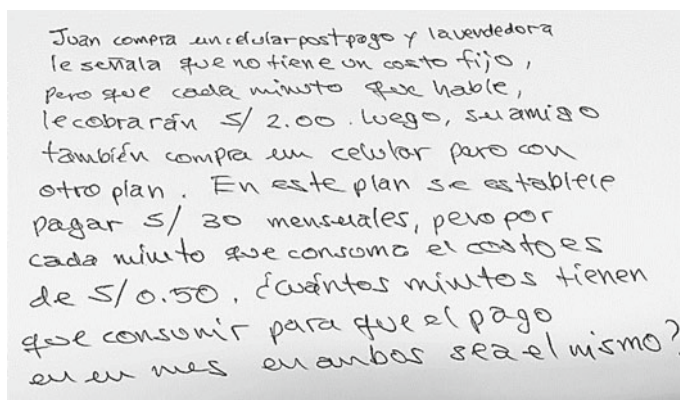 Juan compra un celular postpago y la vendedora
le señala que no tiene un costo fijo,
pero que cada minuto que hable,
le cobrarán S/ 2.00. Luego, su amigo
también compra un celular pero con
otro plan. En este plan se establece
pagar S/ 30 mensuales, pero por
cada minuto que consuma el costo es
de S/ 0.50. ¿Cuántos minutos tienen
que consumir para que el pago
en un mes en ambos sea el mismo?